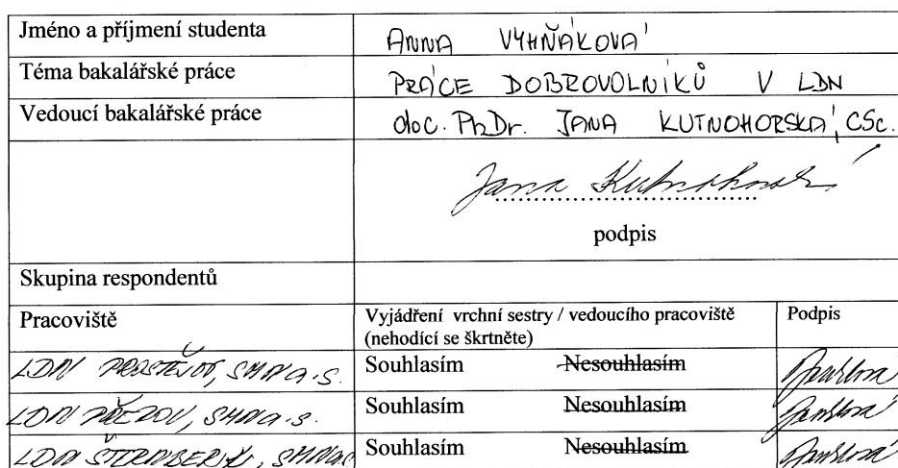 Jméno a příjmení studenta ANNA VYHŇÁKOVÁ
Téma bakalářské práce PRÁCE DOBROVOLNÍKŮ V LDN
Vedoucí bakalářské práce doc. PhDr. JANA KUTNOHORSKÁ, CSc.
Jana Kutnohorská
podpis
Skupina respondentů
Pracoviště Vyjádření vrchní sestry / vedoucího pracoviště Podpis
(nehodící se škrtněte)
LDN PROSTĚJOV, SMN a.s. Souhlasím Nesouhlasím
LDN PŘEROV, SMN a.s. Souhlasím Nesouhlasím
LDN ŠTERNBERK, SMN a.s. Souhlasím Nesouhlasím